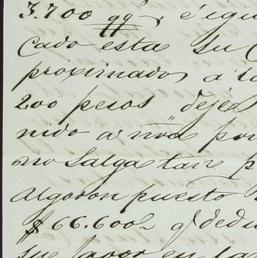 3.700 qq y é igu
cado esta su
proximado, a la
200 pesos deje
nido a nra por
no salga tan p
Algodon puesto
$66.600 q dedu
su favor en la